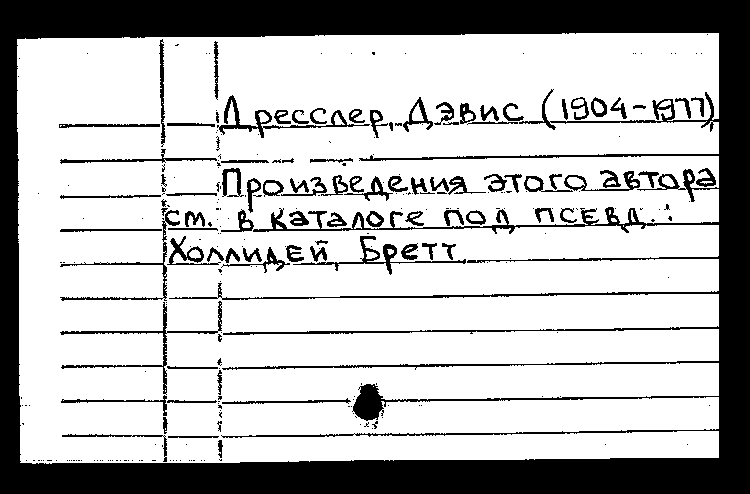 Дресслер, Дэвис (1904-1977)
Произведения этого автора
см. в каталоге под псевд.:
Холлидей, Бретт